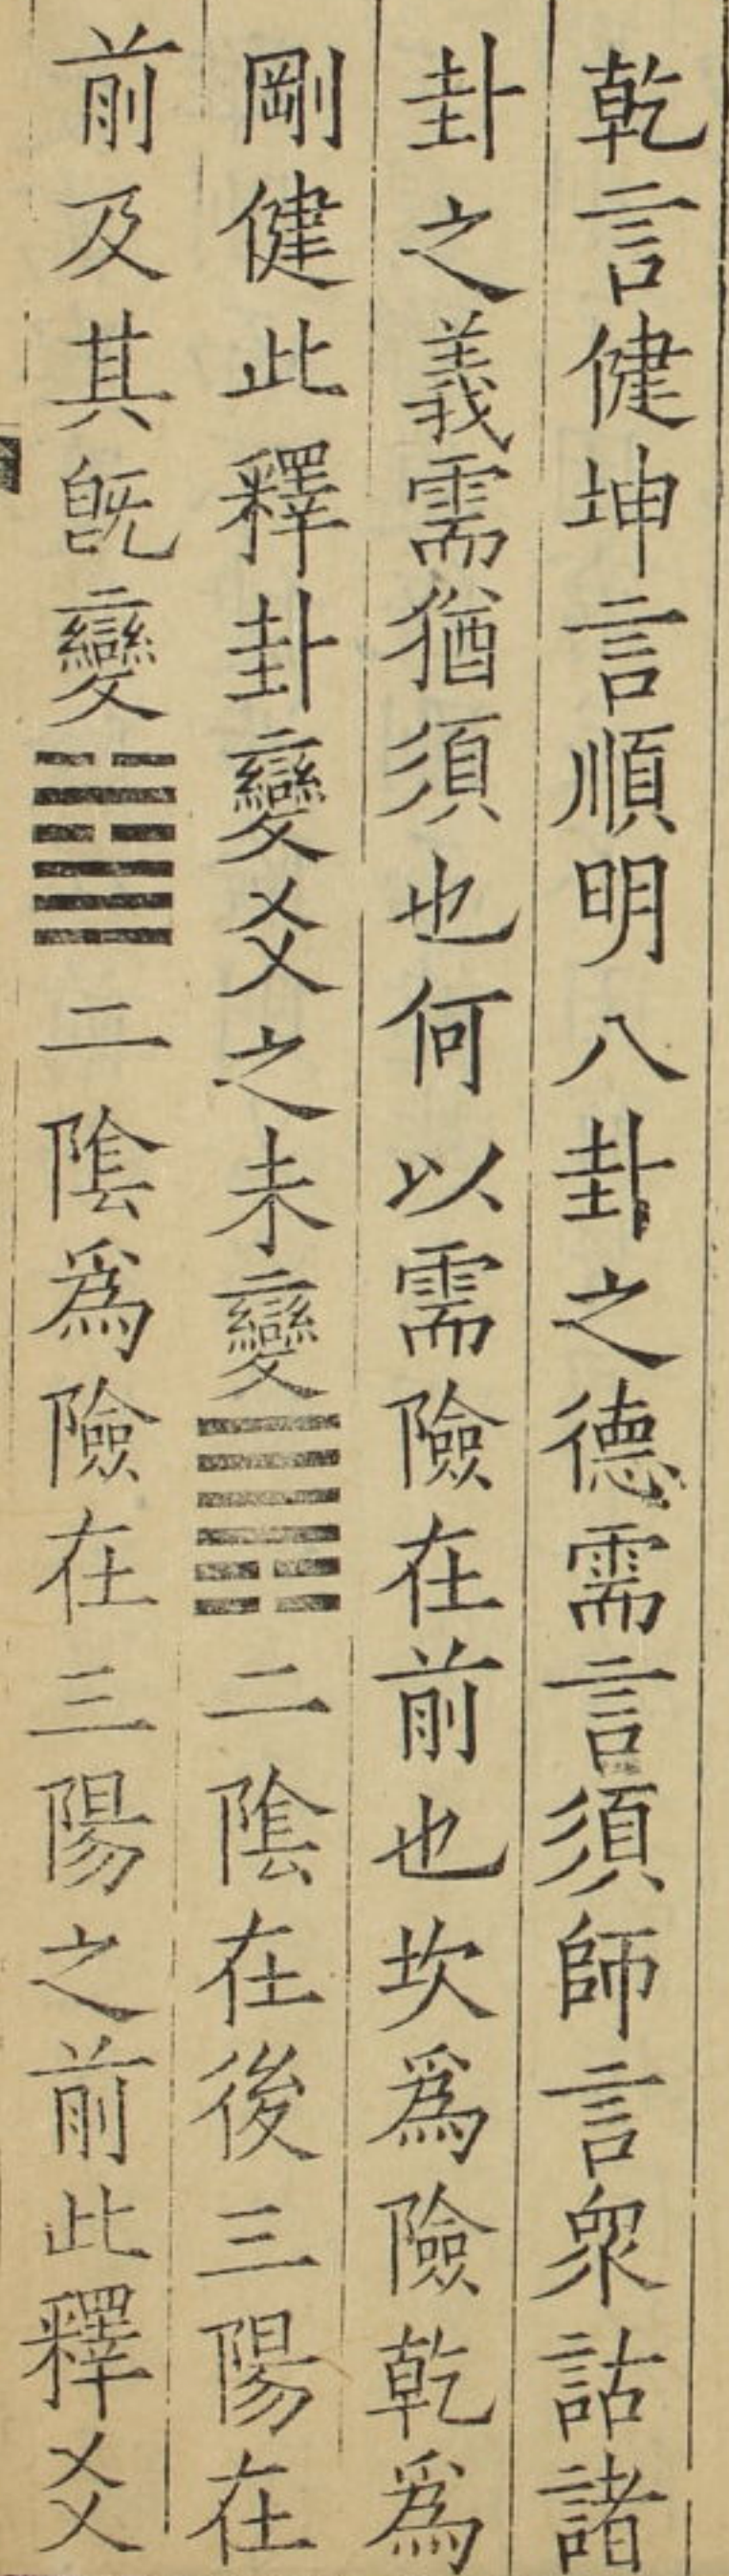 乾言健坤言順明八卦之德需言須師言眾詁諸
卦之義需猶須也何以需險在前也坎爲險乾爲
剛健此釋卦變爻之未變䷠二隂在後三陽在
前及其旣變䷄二隂爲險在三陽之前此釋爻